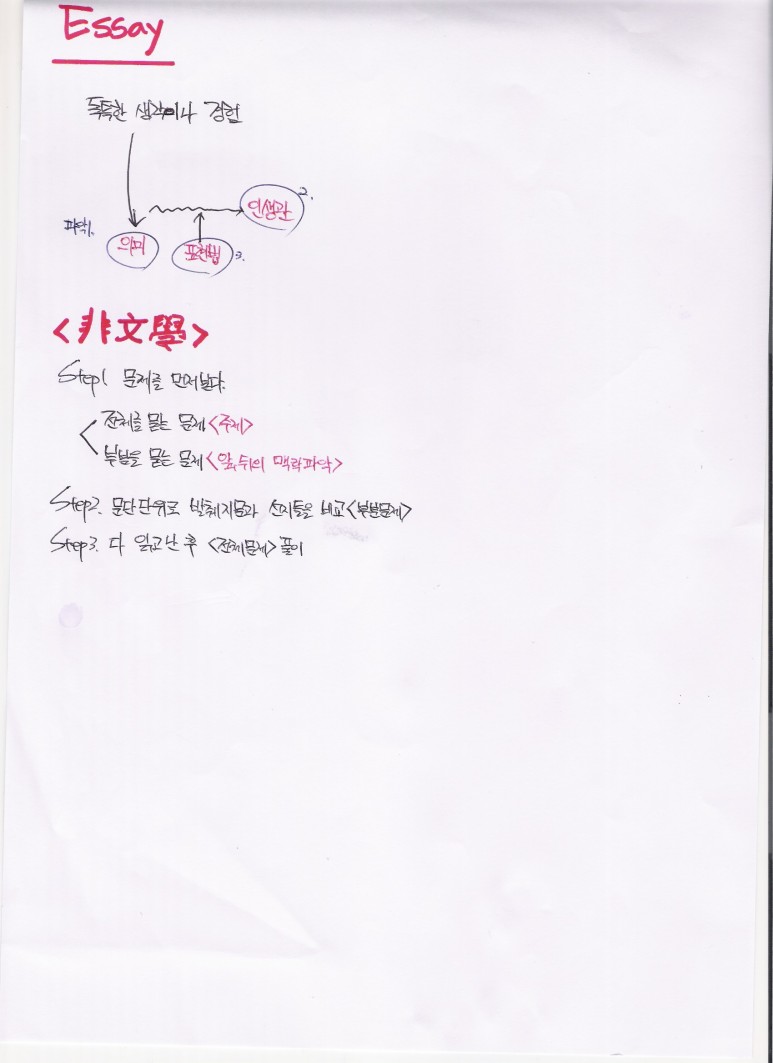 Essay
독특한 생각이나 경험
인생관 2.
파악1.
의미
표현법 3.
<非文學>
Step1 문제를 먼저본다.
전체를 묻는 문제 <주제>
부분을 묻는 문제 <앞,뒤의 맥락파악>
Step2. 문단단위로 발췌지문과 선지들을 비교<부분문제>
Step3. 다 읽고 난 후 <전체문제> 풀이